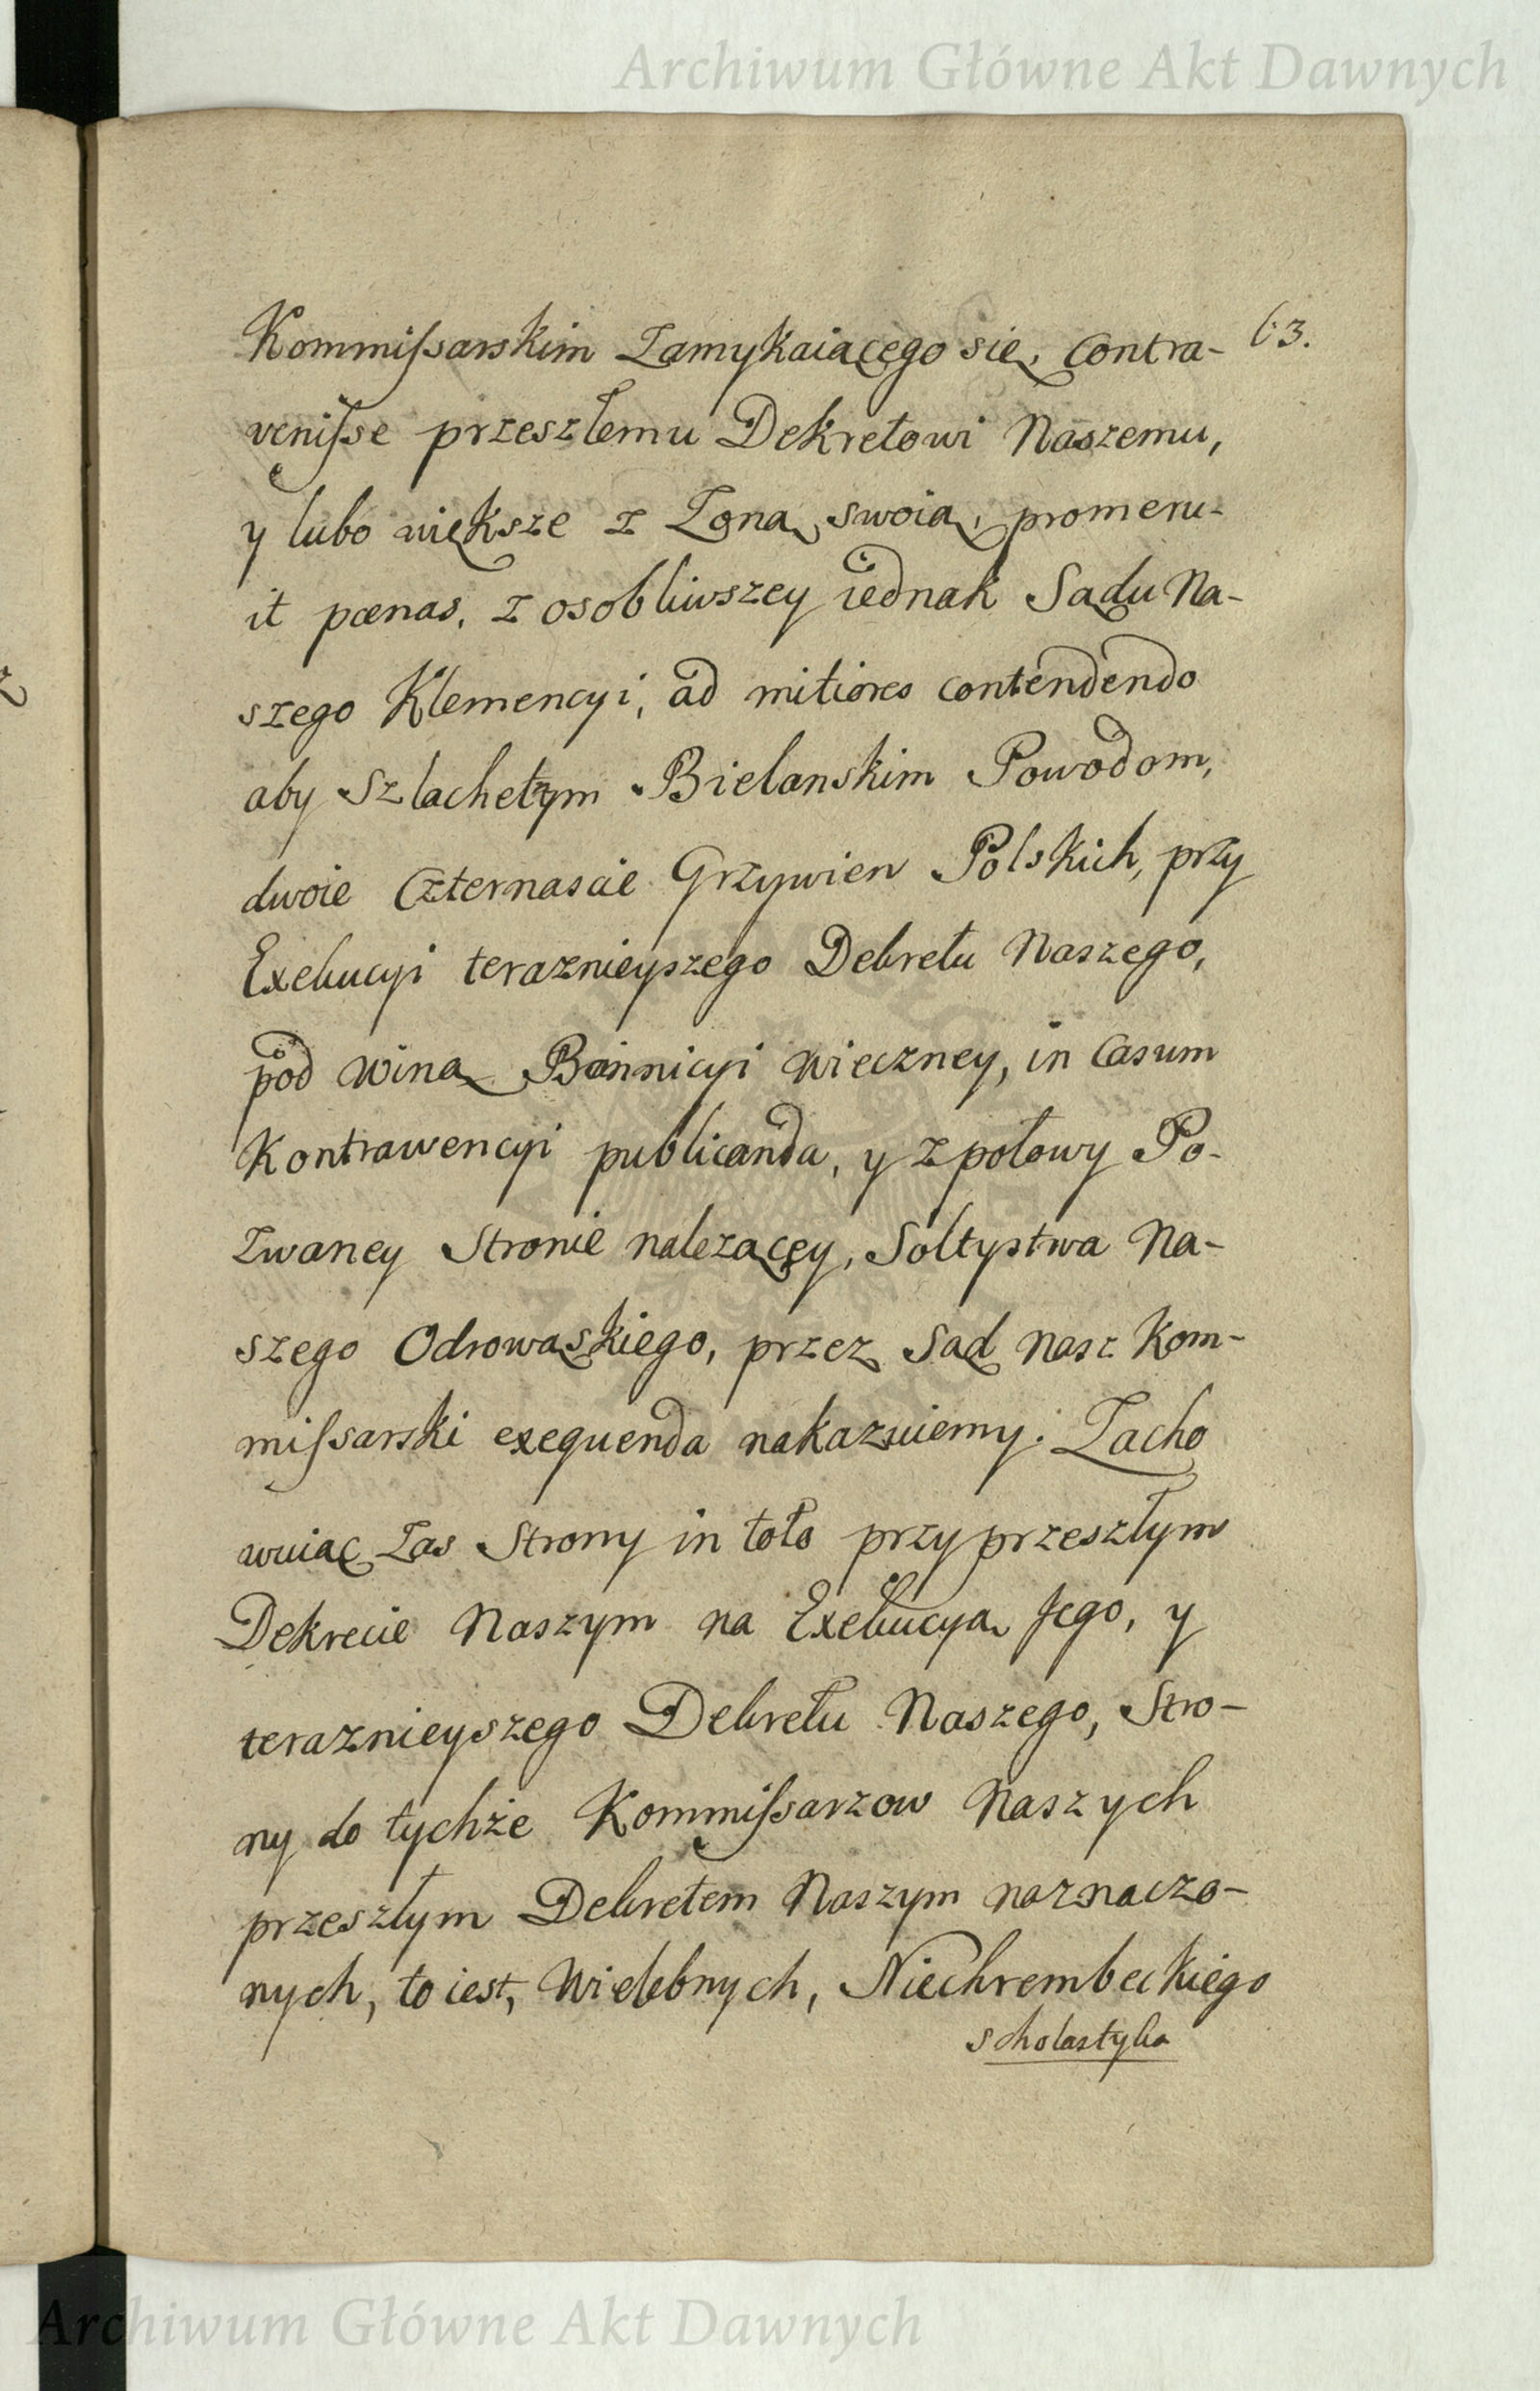 Archiwum Główne Akt Dawnych
63.
Kommissarskim Zamykaiącego się, contra-
venisse przeszłemu Dekretowi Naszemu,
y lubo większe z Zoną swoią, promeru-
it pœnas, z osobliwszey iednak Sądu Na-
szego Klemencyi, ad mitiores contendendo
aby Szlachetnym Bielanskim Powodom,
dwoie Czternascie Grzywien Polskich, przy
Exekucyi teraznieyszego Dekretu Naszego,
pod winą Bannicyi wieczney, in Casum
Kontrawencyi publicanda, y z połowy Po-
zwaney Stronie należącey, Sołtystwa Na-
szego Odrowąskiego, przez Sąd nasz Kom-
missarski exequenda nakazuiemy. Zacho
wuiąc Zas Strony in toto przy przeszłym
Dekrecie Naszym na Exekucyą Jego, y
teraznieyszego Dekretu Naszego, Stro-
ny do tychże Kommissarzow Naszych
przeszłym Dekretem Naszym naznaczo-
nych, to iest, Wielebnych, Niechrembeckiego
Scholastyka
Archiwum Główne Akt Dawnych